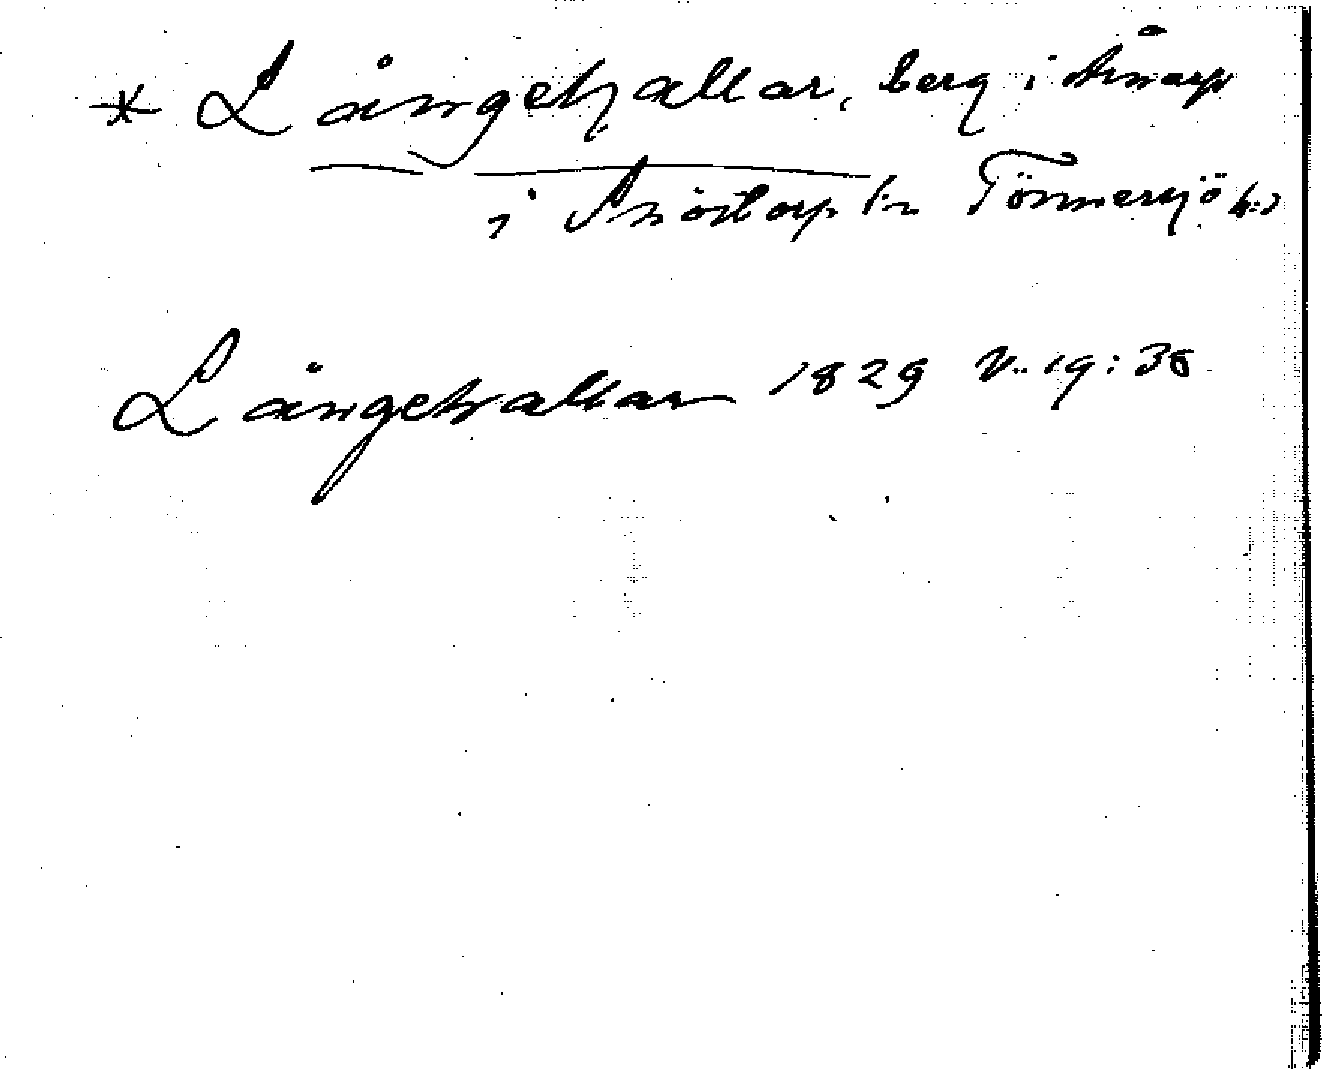 * Långehallar, berg i Årnarp
i Snöstorp sn Tönnersjö hd
Långehallar 1829 V.. 19:36